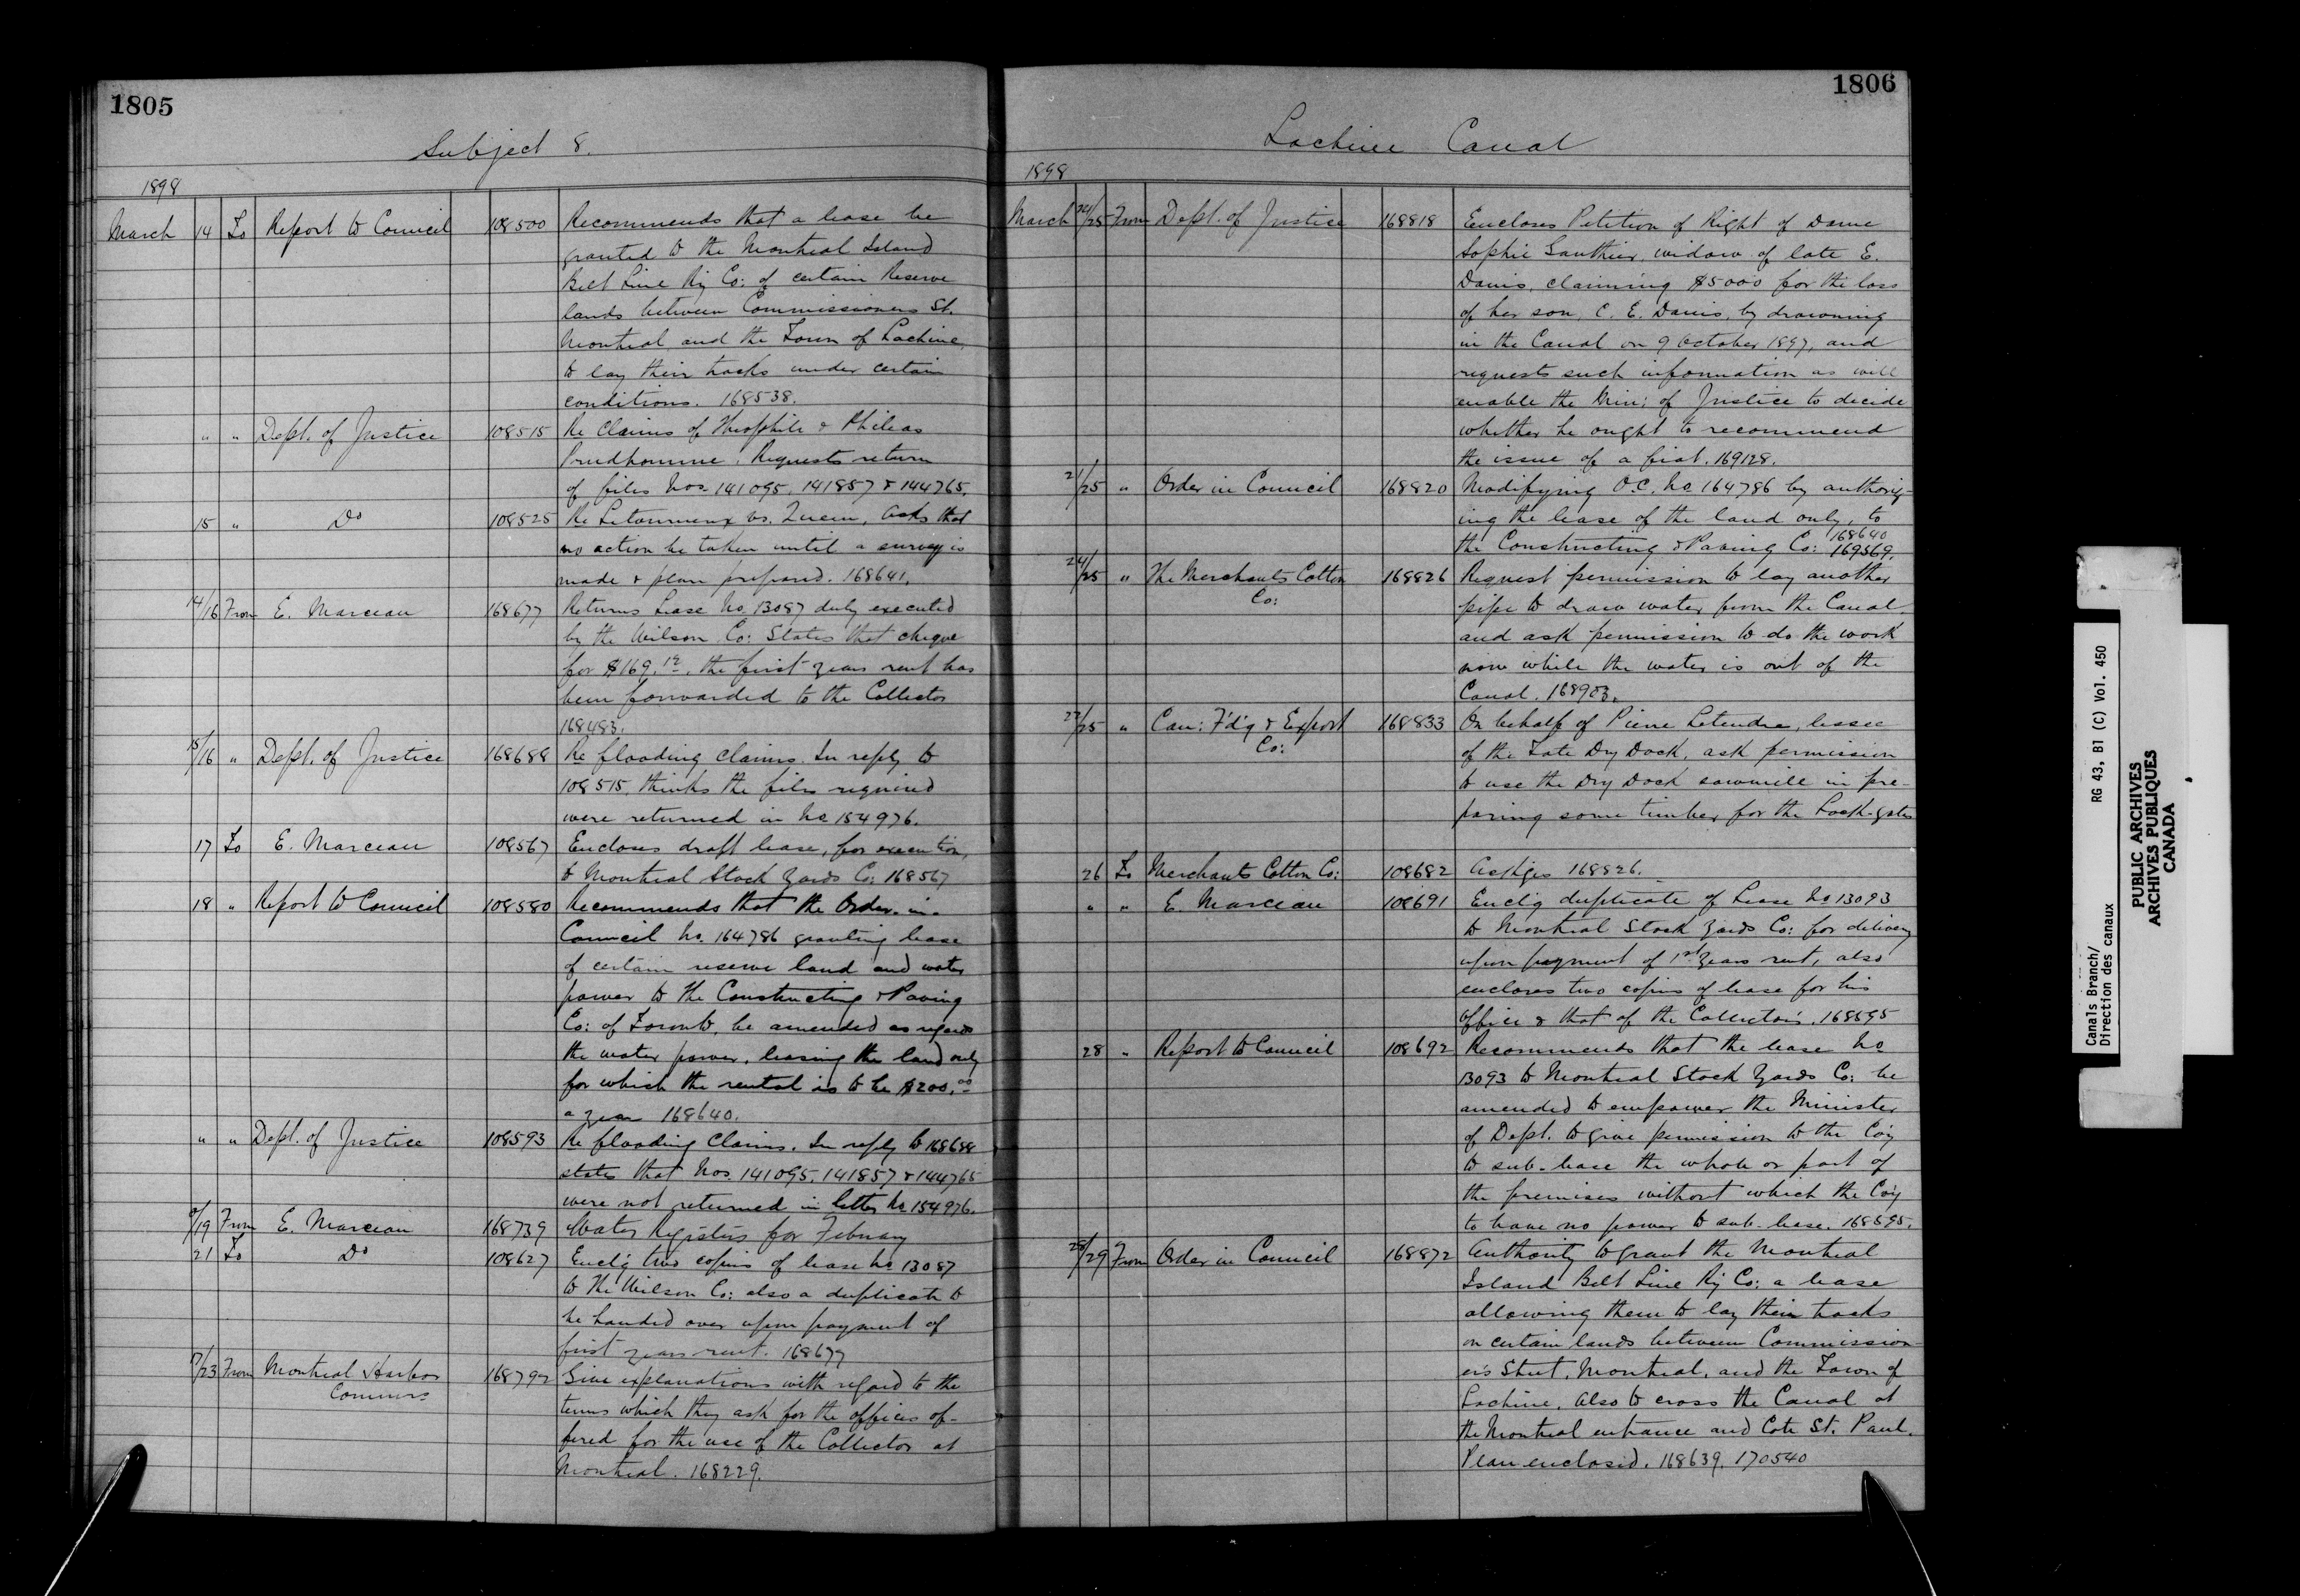 1805
Subject 8.
1898
March 14 To Report to Council 108500 Recommends that a lease be
granted to the Montreal Island
Belt Line Ry Co: of certain Reserve
lands between Commissioners St.
Montreal and the Town of Lachine,
to lay their tracks under certain
conditions. 168538.
" " Dept. of Justice 108515 Re Claims of Theophile & Phileas
Prudhomme. Requests return
of files Nos. 141095, 141857 & 144765.
15 " Do 108525 Re Letourneux vs. Queen, asks that
no action be taken until a survey is
made & plan prepared. 168641.
14/16 From E. Marceau 168677 Returns Lease No. 13087 duly executed
by the Wilson Co: States that cheque
for $169.12, the first years rent has
been forwarded to the Collector
168483.
15/16 " Dept. of Justice 168688 Re flooding claims. In reply to
108515, thinks the files required
were returned in No 154976.
17 To E. Marceau 108567 Encloses draft lease, for execution,
to Montreal Stock Yards Co: 168567
18 " Report to Council 108580 Recommends that the Order-in-
Council No. 164786 granting lease
of certain reserve land and water
power to the Constructing & Paving
Co: of Toronto, be amended as regards
the water power, leasing the land only
for which the rental is to be $200.00
a year 168640.
" " Dept. of Justice 108593 Re flooding Claims. In reply to 168688
states that Nos. 141095, 141857 & 144765
were not returned in letter No 154976.
/19 From E. Marceau 168739 Water Registers for February
21 To Do 108627 Encl'g two copies of lease No 13087
to the Wilson Co: also a duplicate to
be handed over upon payment of
first years rent. 168677
17/23 From Montreal Harbor 168792 Give explanations with regard to the
Commrs terms which they ask for the offices of-
fered for the use of the Collector at
Montreal. 168229.
1806
Lachine Canal
1898
March 24/25 From Dept. of Justice 168818 Encloses Petition of Right of Dame
Sophie Gauthier, widow of late E.
Danis, claiming $5000 for the loss
of her son, C. E. Danis, by drowning
in the Canal on 9 October 1897, and
requests such information as will
enable the Min: of Justice to decide
whether he ought to recommend
the issue of a fiat. 169128.
21/25 " Order in Council 168820 Modifying O.C. No 164786 by authoriz-
ing the lease of the land only, to
168640
the Constructing & Paving Co: 169569.
24/25 " The Merchants Cotton 168826 Request permission to lay another
Co: pipe to draw water from the Canal,
and ask permission to do the work
now while the water is out of the
Canal. 168903.
23/25 " Can: F'd'g & Export 168833 On behalf of Pierre Letendre, lessee
Co: of the Tate Dry Dock, ask permission
to use the Dry Dock sawmill in pre-
paring some timber for the Lock-gates
26 To Merchants Cotton Co: 108682 Ack'ges 168826.
" " E. Marceau 108691 Encl'g duplicate of Lease No 13093
to Montreal Stock Yards Co: for delivery
upon payment of 1st years rent, also
encloses two copies of lease for his
office & that of the Collector's. 168595
28 " Report to Council 108692 Recommends that the lease No
13093 to Montreal Stock Yards Co: be
amended to empower the Minister
of Dept. to give permission to the Co'y
to sub-lease the whole or part of
the premises without which the Co'y
to have no power to sub-lease. 168595.
28/29 From Order in Council 168872 Authority to grant the Montreal
Island Belt Line Ry Co: a lease
allowing them to lay their tracks
on certain lands between Commission-
er's Street, Montreal, and the Town of
Lachine. Also to cross the Canal at
the Montreal entrance and Cote St. Paul.
Plan enclosed. 168639. 170540
Canals Branch/ RG 43, B1 (C) Vol. 450
Direction des canaux
PUBLIC ARCHIVES
ARCHIVES PUBLIQUES
CANADA